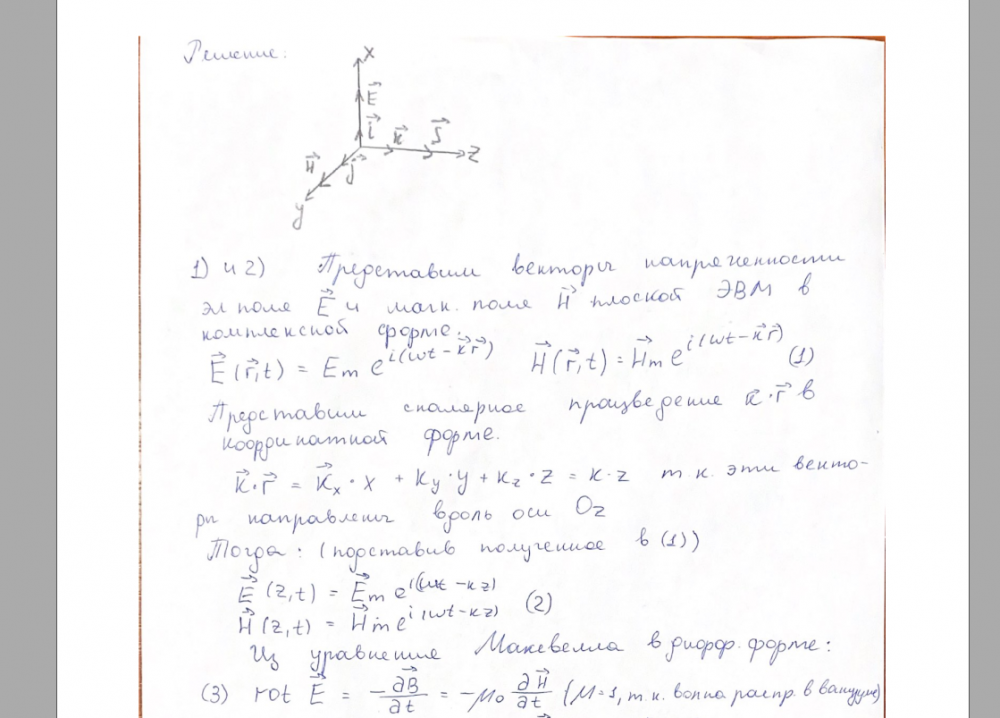 Решение:
x
E⃗
i⃗
k⃗
S⃗
z
H⃗
j⃗
y
1) и 2) Представим векторы напряженности
эл поля E⃗ и магн. поля H⃗ плоской ЭВМ в
комплексной форме.
E⃗(r⃗,t) = Em e^{i(ωt - k⃗r⃗)} H⃗(r⃗,t) = H⃗m e^{i(ωt - k⃗r⃗)} (1)
Представим скалярное произведение k⃗·r⃗ в
координатной форме.
k⃗·r⃗ = k⃗x·x + ky·y + kz·z = k·z т.к. эти векто-
ры направлены вдоль оси Oz
Тогда: (подставив полученное в (1))
E⃗(z,t) = E⃗m e^{i(ωt - kz)}
H⃗(z,t) = H⃗m e^{i(ωt - kz)} (2)
Из уравнения Максвелла в дифф. форме:
(3) rot E⃗ = -∂B⃗/∂t = -μ₀ ∂H⃗/∂t (μ=1, т.к. волна распр. в вакууме)